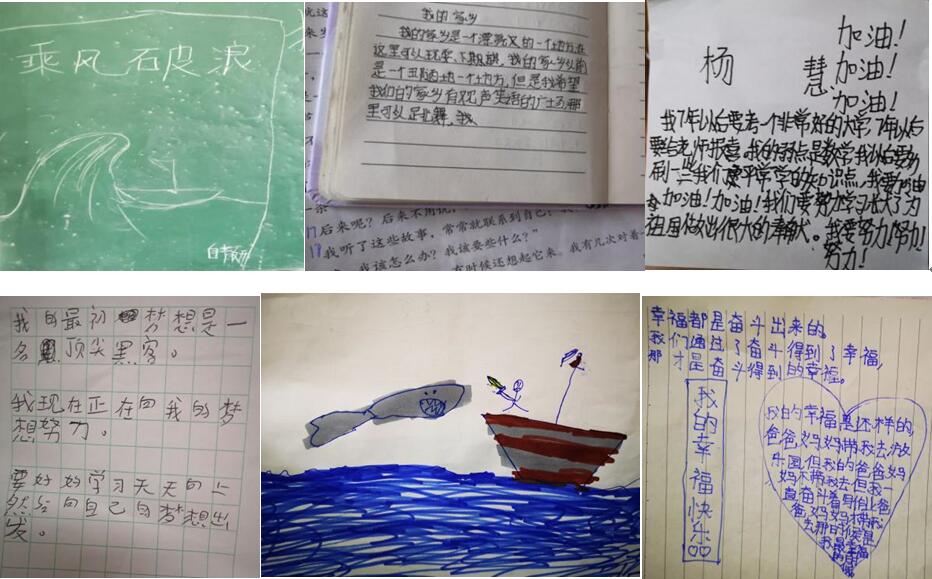 乘风破浪
我的家乡
我的家乡是一个漂亮又的一个地方,在
这里可以玩耍、下期棋,我的家乡以前
是一个丑陋土地一个地方,但是我希望
我们的家乡有欢声笑语的广场,那
里可以足比舞、我、
17后来呢?后来不用说,
我听了这些故事,常常就联系到自己:
我该怎么办?我该要些什么?”
有时候还想起它来。我有几次对着
杨慧
加油!
加油!
加油!
我7年以后要考一个非常好的大学7年以后
要给老师报喜,我的弱点是数学我以后要努力
刷一些我们平常学的知识点,我要加油
加油!加油!我们要努力学习长大了为
祖国做出很大的奉献。我要努力!努力!
努力!
我的最初梦想是一
名顶尖黑客。
我现在正在向我的梦
想努力。
要好好学习天天向上
然后向自己的梦想出
发。
幸福都是奋斗出来的。
我们通过了奋斗得到了幸福,
那才是奋斗得到的幸福。
我的幸福快乐
我的幸福是这样的,
爸爸,妈妈带我去游
乐园,但我的爸爸妈
妈不带我去但我
爸,妈妈带我
去那时候是
我最幸福